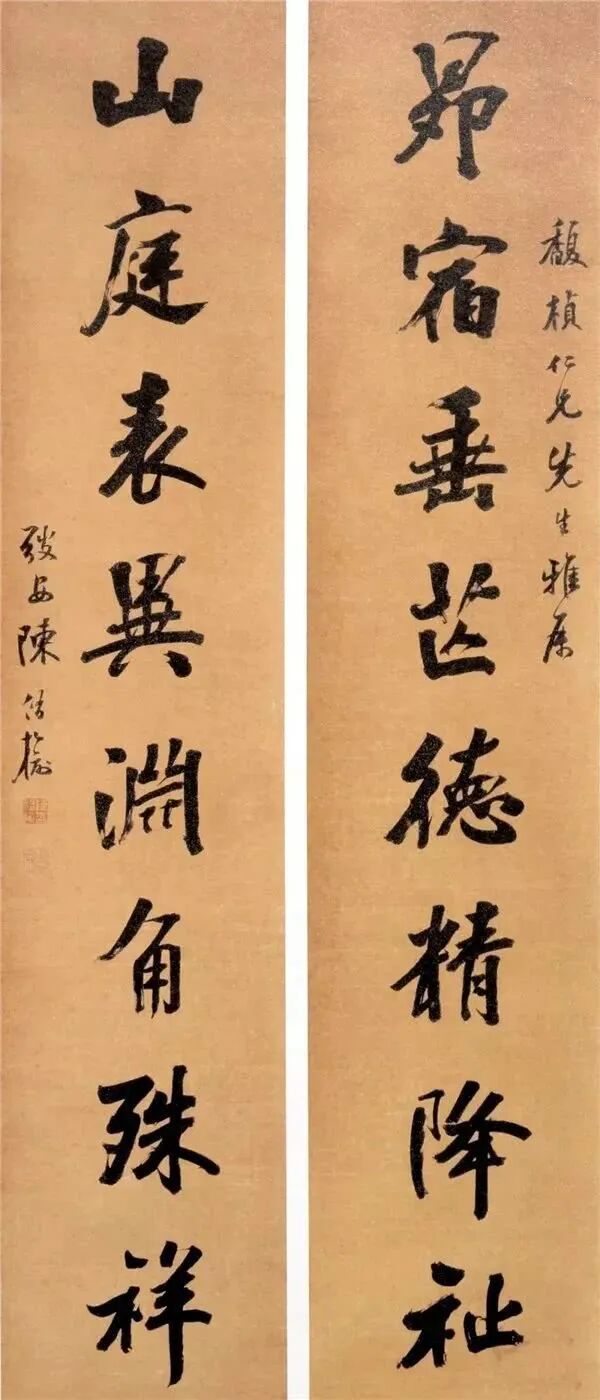 馥楨仁兄先生雅屬
昴宿垂芒德精降祉
山庭表異淵角殊祥
陳